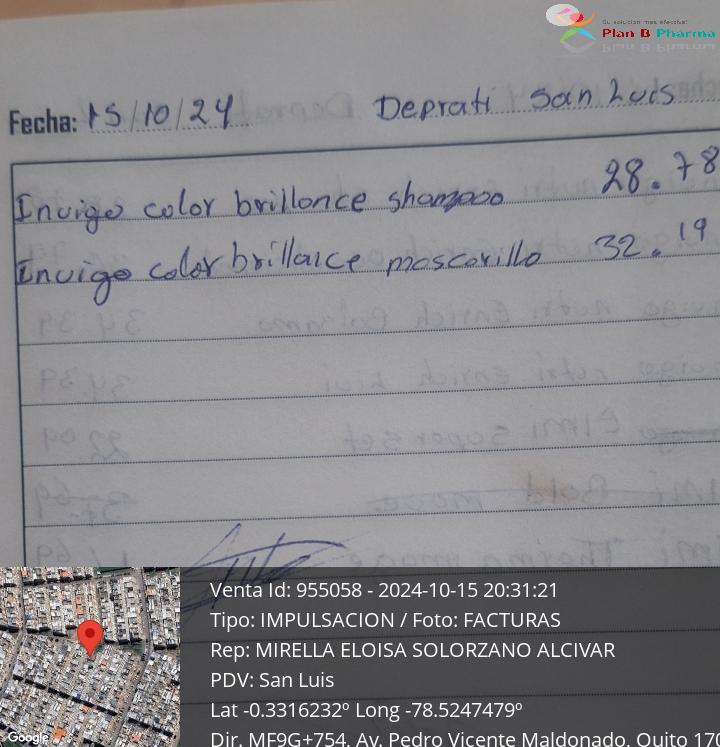 Su solucion mas efectiva!
Plan B Pharma
Fecha: 15/10/24 Deprati San Luis
Invigo color brillonce shampoo 28.78
Invigo color brillaice moscorillo 32.19
Venta Id: 955058 - 2024-10-15 20:31:21
Tipo: IMPULSACION / Foto: FACTURAS
Rep: MIRELLA ELOISA SOLORZANO ALCIVAR
PDV: San Luis
Lat -0.3316232º Long -78.5247479º
Dir. MF9G+754, Av. Pedro Vicente Maldonado, Quito 170
Google